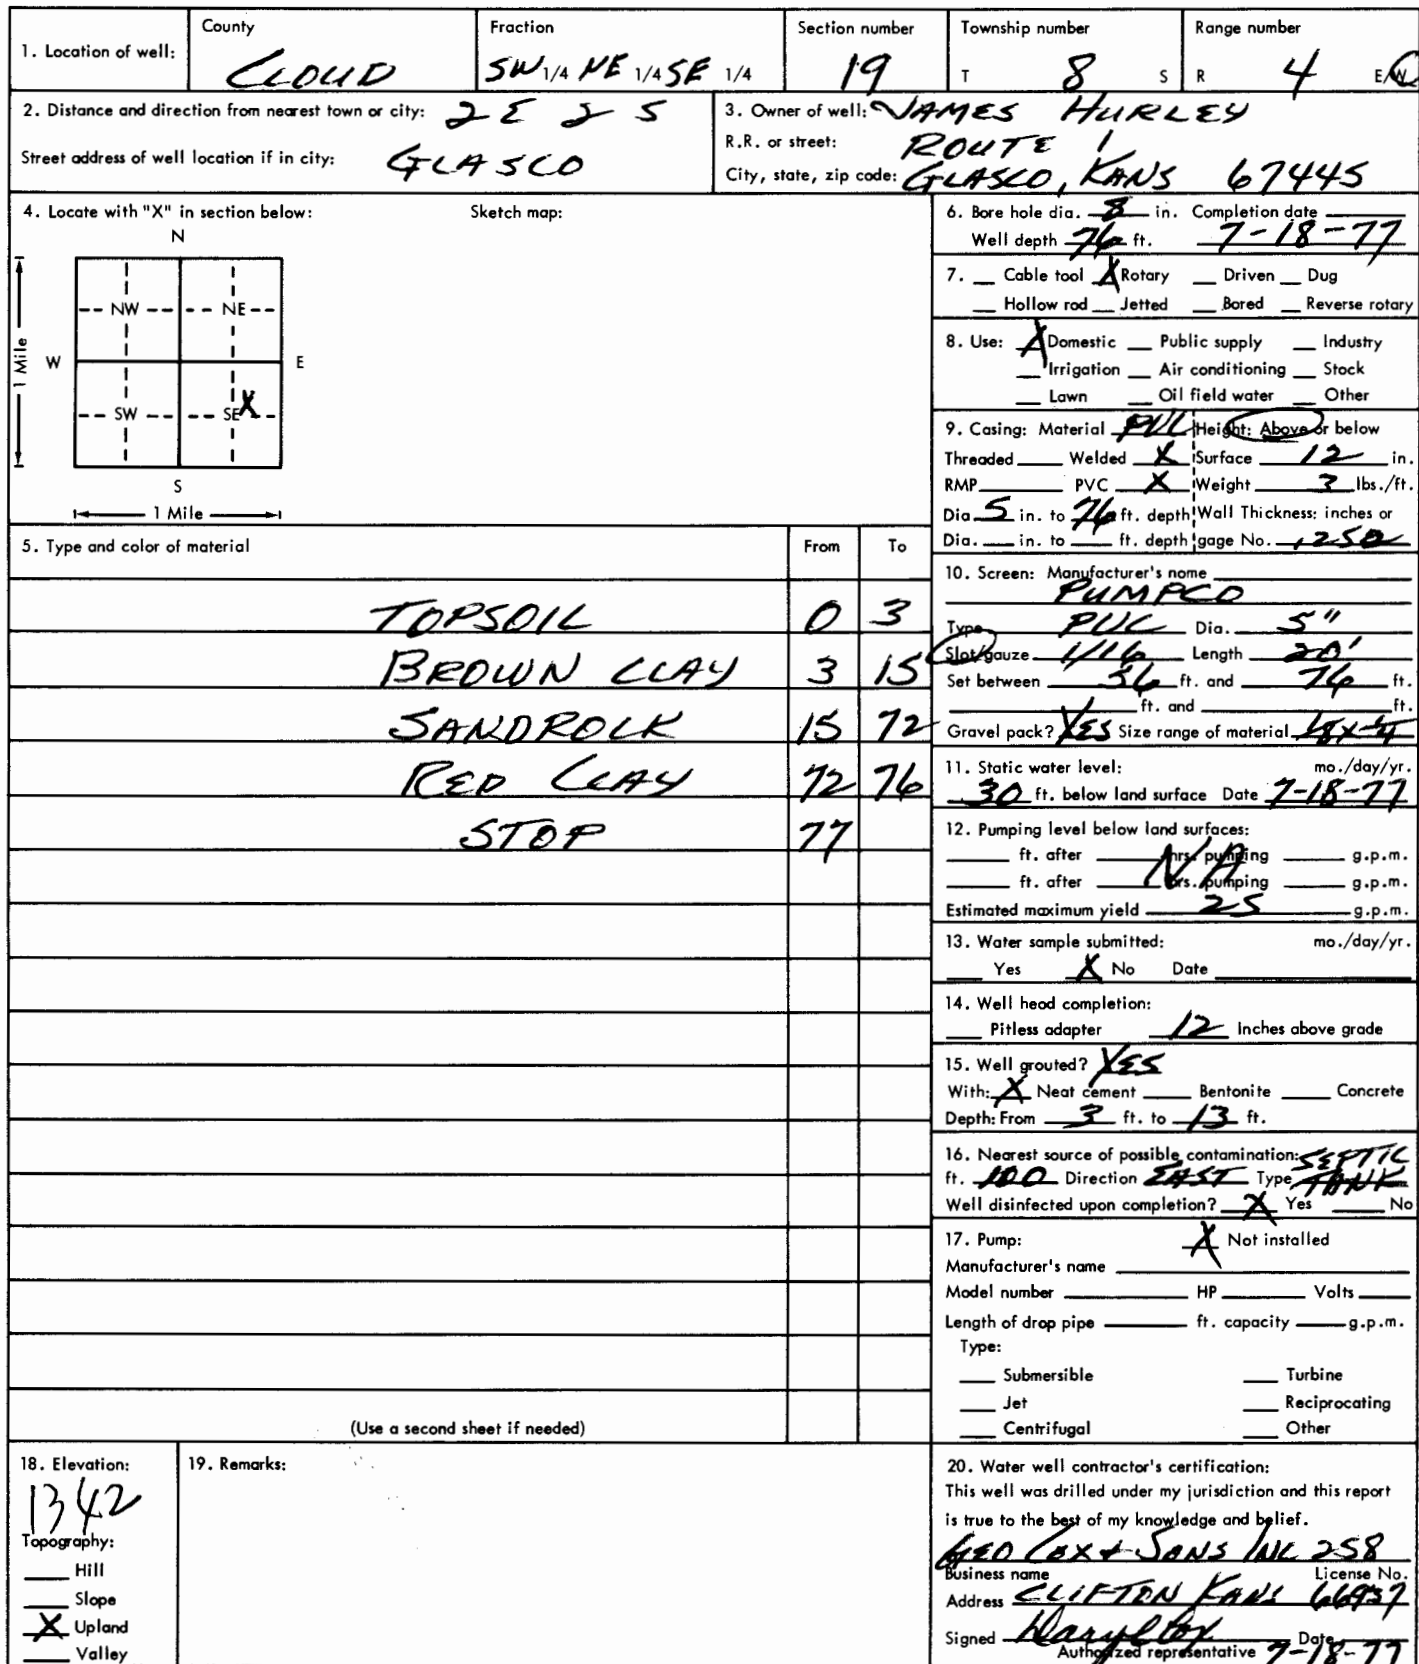 1. Location of well: County CLOUD Fraction SW 1/4 NE 1/4 SE 1/4 Section number 19 Township number T 8 S Range number R 4 E/W
2. Distance and direction from nearest town or city: 2 E 2 S
Street address of well location if in city: GLASCO
3. Owner of well: JAMES HURLEY
R.R. or street: ROUTE 1
City, state, zip code: GLASCO, KANS 67445
4. Locate with "X" in section below: Sketch map:
N
NW NE
W E
1 Mile
SW SE X
S
1 Mile
5. Type and color of material From To
TOPSOIL 0 3
BROWN CLAY 3 15
SANDROCK 15 72
RED CLAY 72 76
STOP 77
(Use a second sheet if needed)
6. Bore hole dia. 8 in. Completion date
Well depth 76 ft. 7-18-77
7. Cable tool X Rotary Driven Dug
Hollow rod Jetted Bored Reverse rotary
8. Use: X Domestic Public supply Industry
Irrigation Air conditioning Stock
Lawn Oil field water Other
9. Casing: Material PVC Height: Above or below
Threaded Welded X Surface 12 in.
RMP PVC X Weight 3 lbs./ft.
Dia. 5 in. to 76 ft. depth Wall Thickness: inches or
Dia. in. to ft. depth gage No. .250
10. Screen: Manufacturer's name
PUMPCO
Type PVC Dia. 5"
Slot/gauze 1/16 Length 20'
Set between 56 ft. and 76 ft.
ft. and ft.
Gravel pack? YES Size range of material 1/8 x 1/4
11. Static water level: mo./day/yr.
30 ft. below land surface Date 7-18-77
12. Pumping level below land surfaces:
ft. after hrs. pumping g.p.m.
NA
ft. after hrs. pumping g.p.m.
Estimated maximum yield 25 g.p.m.
13. Water sample submitted: mo./day/yr.
Yes X No Date
14. Well head completion:
Pitless adapter 12 Inches above grade
15. Well grouted? YES
With: X Neat cement Bentonite Concrete
Depth: From 3 ft. to 13 ft.
16. Nearest source of possible contamination: SEPTIC
ft. 100 Direction EAST Type TANK
Well disinfected upon completion? X Yes No
17. Pump: X Not installed
Manufacturer's name
Model number HP Volts
Length of drop pipe ft. capacity g.p.m.
Type:
Submersible Turbine
Jet Reciprocating
Centrifugal Other
18. Elevation:
1342
Topography:
Hill
Slope
X Upland
Valley
19. Remarks:
20. Water well contractor's certification:
This well was drilled under my jurisdiction and this report
is true to the best of my knowledge and belief.
GEO COX + SONS INC 258
Business name License No.
Address CLIFTON KANS 66937
Signed Daryl Cox Date
Authorized representative 7-18-77